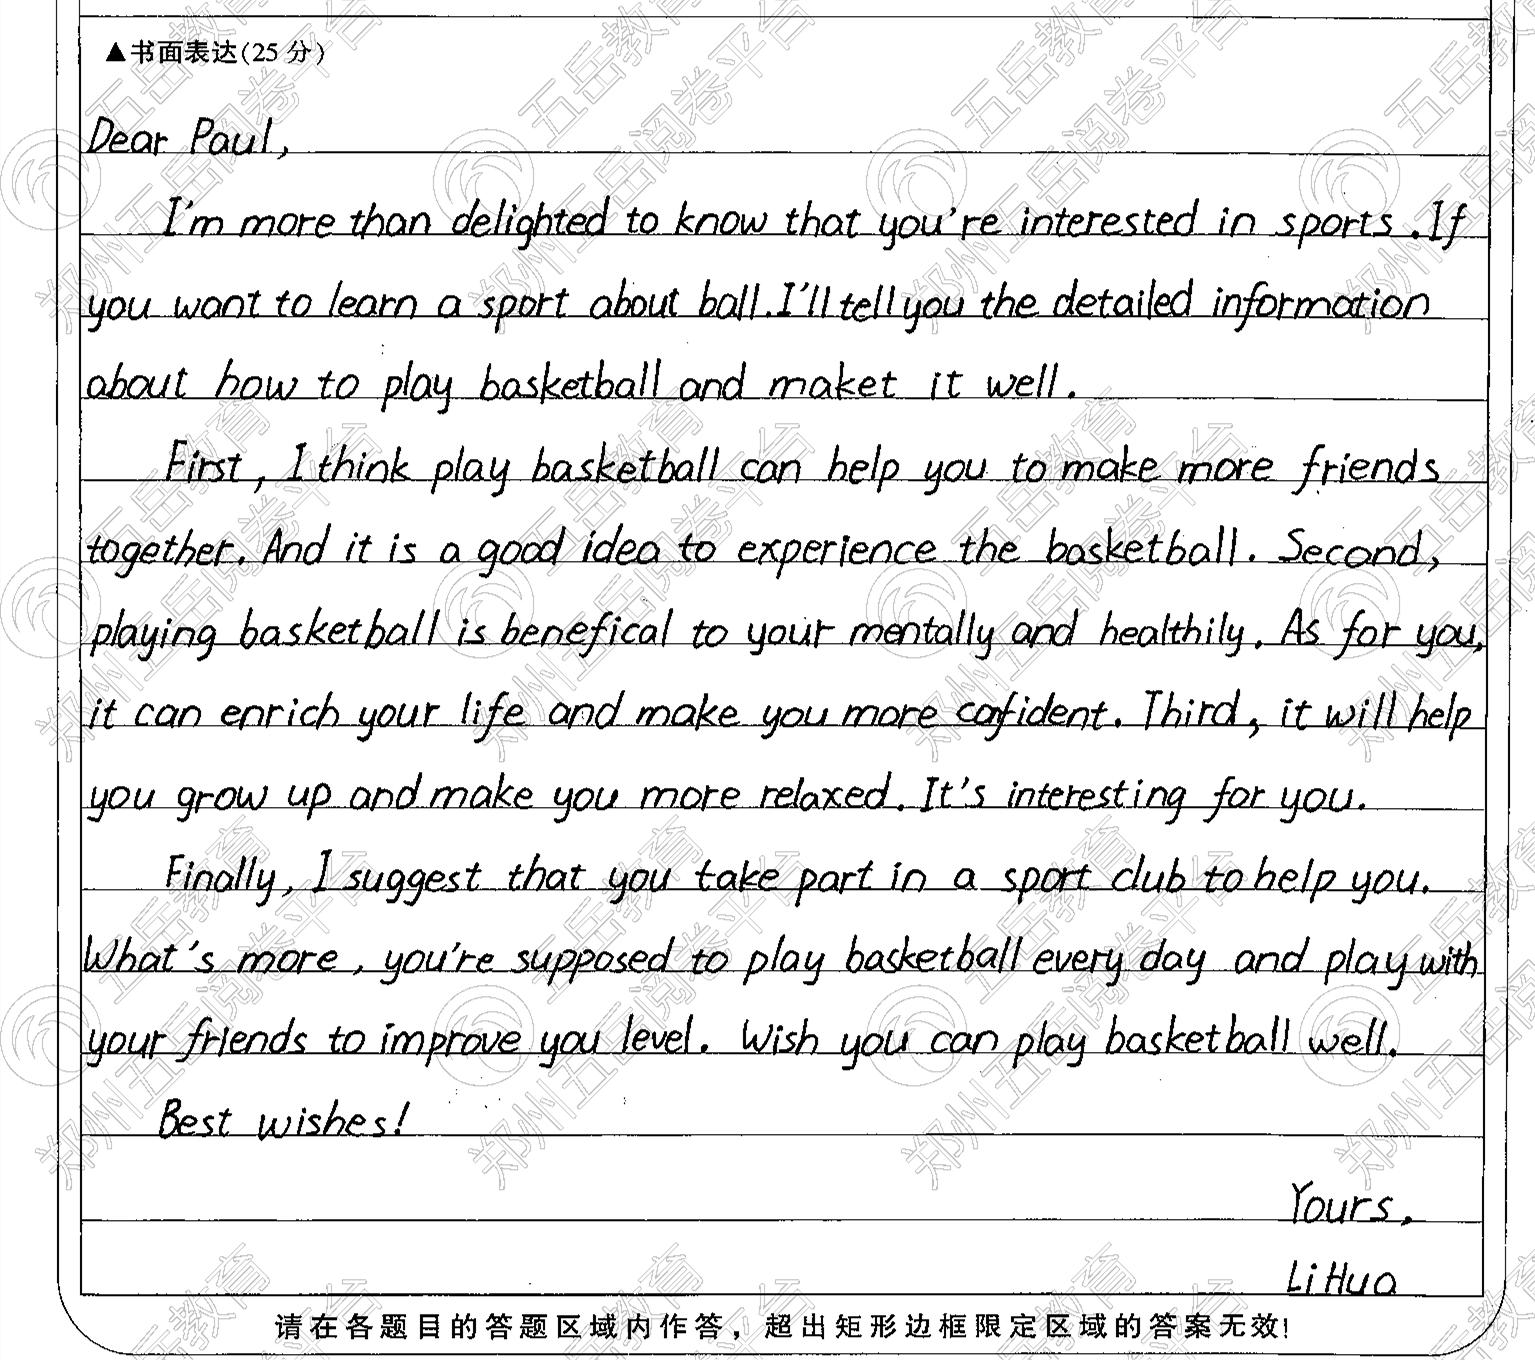 ▲书面表达(25分)
Dear Paul,
I'm more than delighted to know that you're interested in sports. If
you want to learn a sport about ball. I'll tell you the detailed information
about how to play basketball and maket it well.
First, I think play basketball can help you to make more friends
together. And it is a good idea to experience the basketball. Second,
playing basketball is benefical to your mentally and healthily. As for you,
it can enrich your life and make you more cofident. Third, it will help
you grow up and make you more relaxed. It's interesting for you.
Finally, I suggest that you take part in a sport club to help you.
What's more, you're supposed to play basketball every day and play with
your friends to improve you level. Wish you can play basketball well.
Best wishes!
Yours,
Li Hua
请在各题目的答题区域内作答，超出矩形边框限定区域的答案无效!
郑州五岳教育
五岳阅卷平台